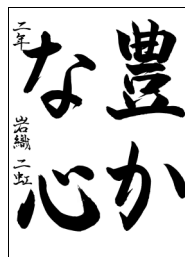 豊か
な心
二年 岩織 二虹